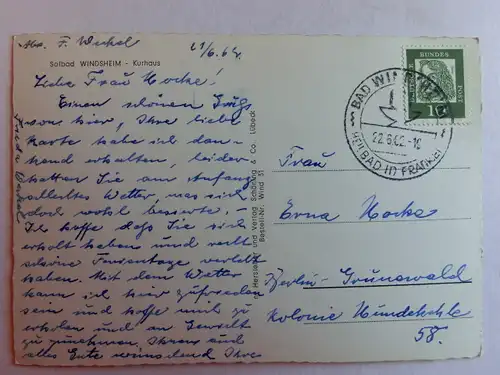 Abs. F. Weckel 21/6.62.
Solbad WINDSHEIM - Kurhaus
Liebe Frau Hocke!
Einen schönen Gruß
von hier, Ihre liebe
Karte habe ich dan-
kend erhalten, leider
hatten Sie am Anfang
schlechtes Wetter, was sich
doch wohl besserte. -
Ich hoffe daß Sie sich
erholt haben und recht
schöne Ferientage verlebt
haben. Mit dem Wetter
kann ich hier zufrieden
sein und hoffe mich zu
erholen und an Gewicht
zuzunehmen. Ihnen und
alles Gute wünschend Ihre
Frieda Weckel
Herstellung und Verlag Schöning & Co., Lübeck
Bestell-Nr. Wind 51
DEUTSCHE BUNDESPOST
10
BAD WINDSHEIM
22.6.62.-10
HEILBAD IN FRANKEN
Frau
Erna Hocke
Berlin-Grunewald
Kolonie Hundekehle
58.